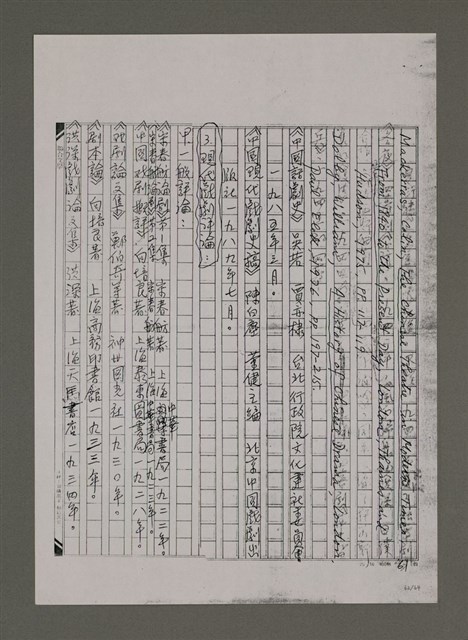 Mackerras, Colin, The Chinese Theatre in Modern Times
From 1840 to the Present Day, London, Thames and
Hudson, 1975. pp 117-119.
Dolby, William, A History of Chinese Drama, London,
Paul Elek 1976. pp 197-215.
《中國話劇史》吳若 賈亦棣 台北行政院文化建設委員會
一九八五年三月。
《中國現代戲劇史稿》陳白塵 董健主編 北京中國戲劇出
版社一九八九年七月。
3. 現代戲劇評論：
甲 一般評論：
《宋春舫論劇》第一集 宋春舫著 上海中華書局一九二二年。
《中國戲劇概評》向培良著 上海泰東圖書局一九二八年。
《戲劇論文集》鄭伯奇等著 神州國光社一九三〇年。
《劇本論》向培良著 上海商務印書館一九三三年。
《洪深戲劇論文集》洪深著 上海天馬書店一九三四年。
61